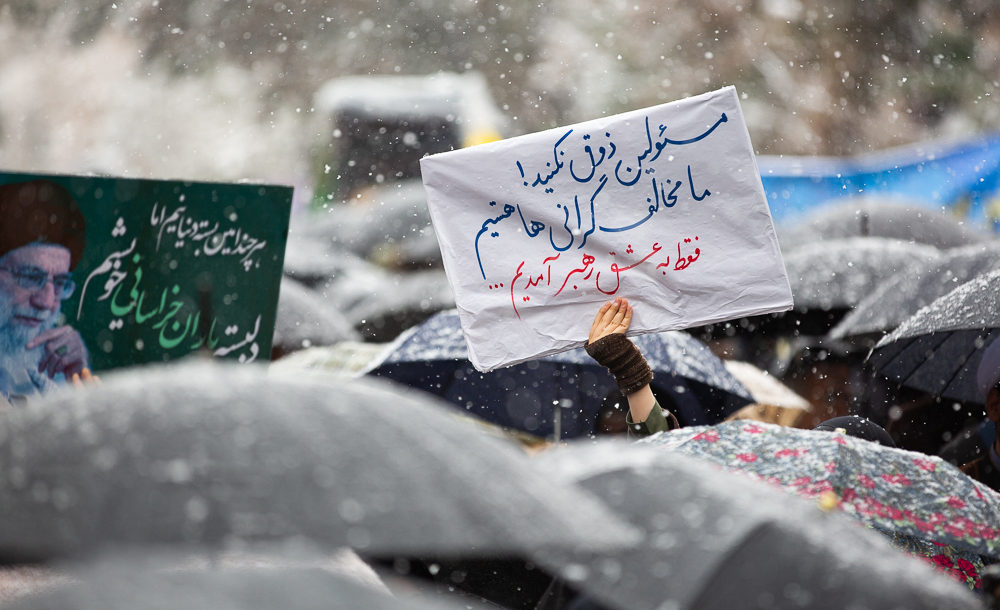 مسئولین ذوق نکنید!
ما مخالف گرانی ها هستیم
فقط به عشق رهبر آمدیم ...
هرچند امین بسته دنیا نیم اما
دلبسته یاران خراسانی خویشم